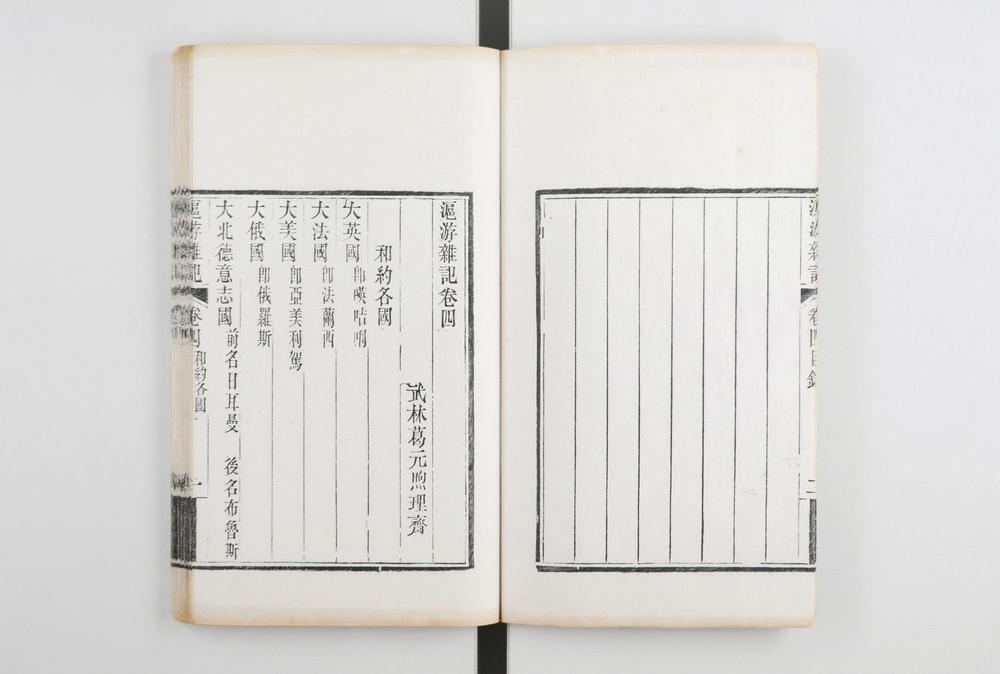 滬游雜記
卷四目錄
二
滬游雜記卷四
武林葛元煦理齋
和約各國
大英國 卽㗸咭唎
大法國 卽法蘭西
大美國 卽亞美利駕
大俄國 卽俄羅斯
大北德意志國 前名日耳曼 後名布魯斯
滬游雜記
卷四 和約各國
一